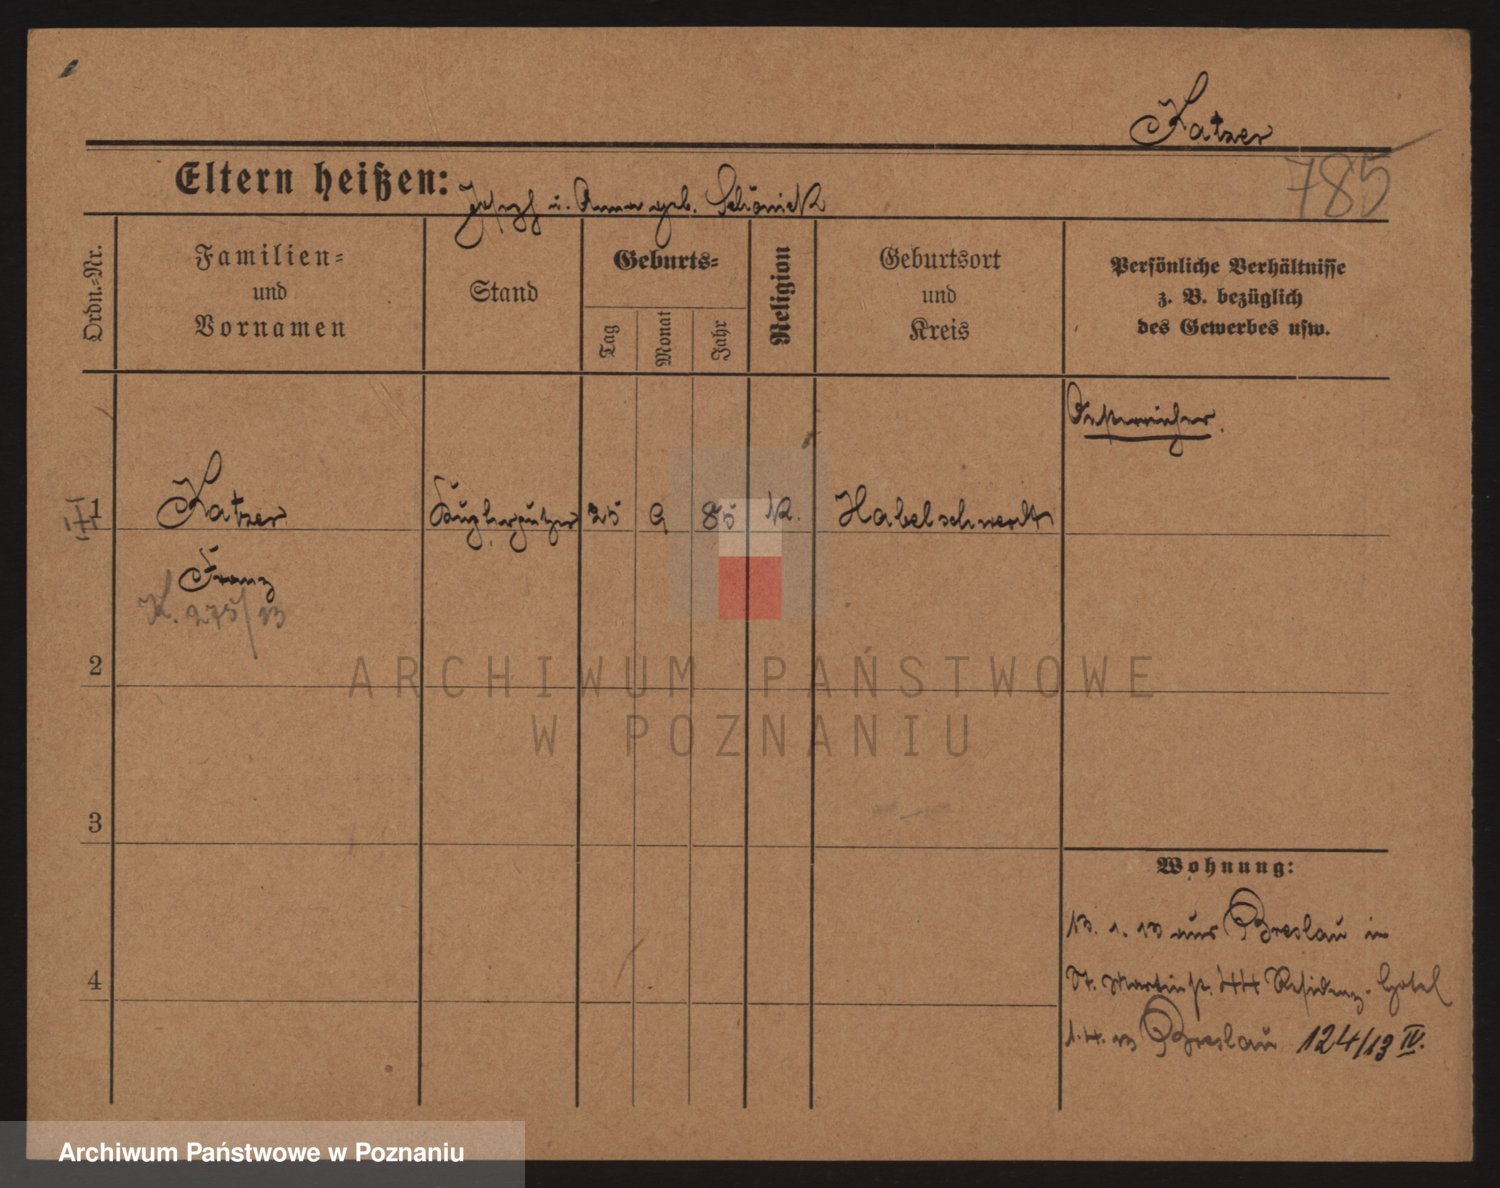 Katzer
785
Eltern heißen: Josef u. Anna geb.
Ordn.-Nr.
Familien-
und
Vornamen
Stand
Geburts-
Tag
Monat
Jahr
Religion
Geburtsort
und
Kreis
Persönliche Verhältnisse
z. B. bezüglich
des Gewerbes usw.
Oesterreicher.
1 Katzer 25 9 85 K. Habelschwerdt
Franz
K. 275/13
2
ARCHIWUM PAŃSTWOWE
W POZNANIU
3
Wohnung:
13. 1. 13 aus Breslau in
4 St. Martinstr. 44 Residenz-Hotel
1. 4. 13 Breslau 124/13 IV.
Archiwum Państwowe w Poznaniu